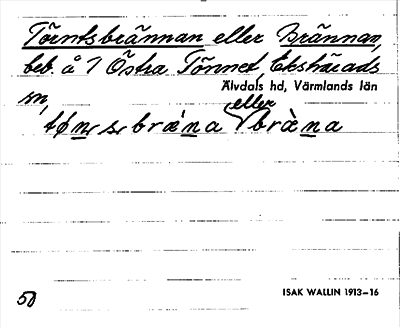 Törntsbrännan eller Brännan,
beb. å 7 Östra Tönnet, Ekshärads
sn,
Älvdals hd, Värmlands län
eller
bràna
50
ISAK WALLIN 1913–16